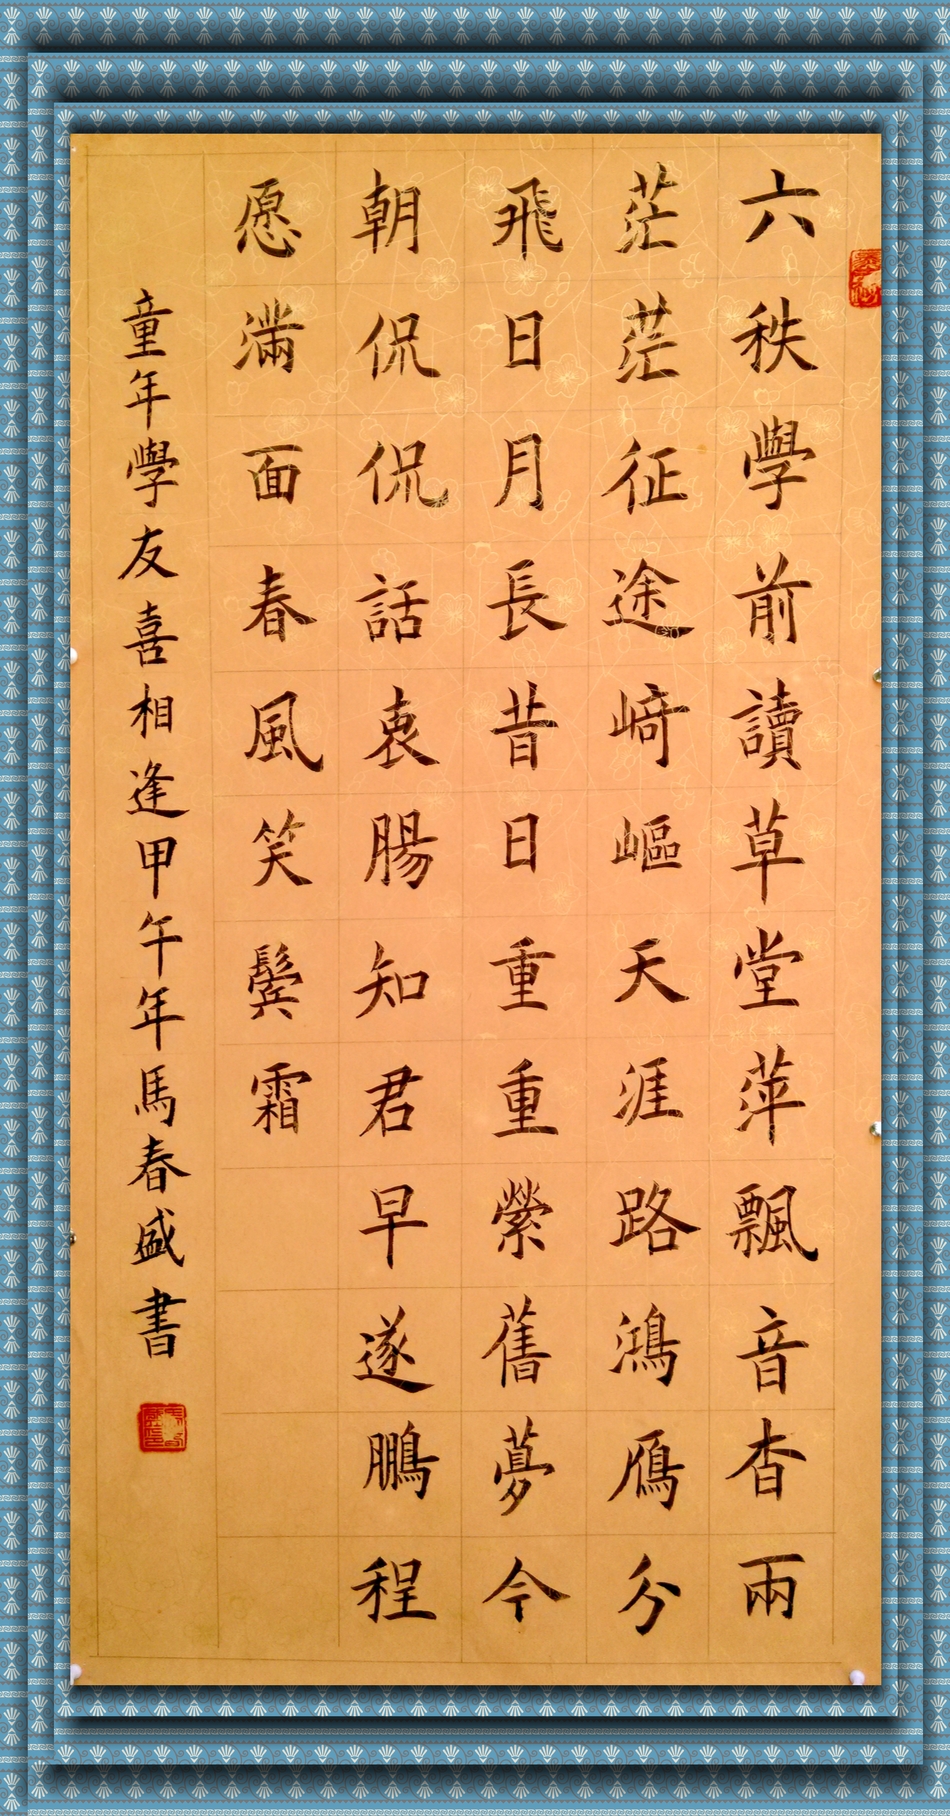 六秩學前讀草堂萍飄音杳兩
茫茫征途崎嶇天涯路鴻鴈分
飛日月長昔日重重縈舊夢今
朝侃侃話衷腸知君早遂鵬程
愿滿面春風笑鬓霜
童年學友喜相逢甲午年馬春盛書